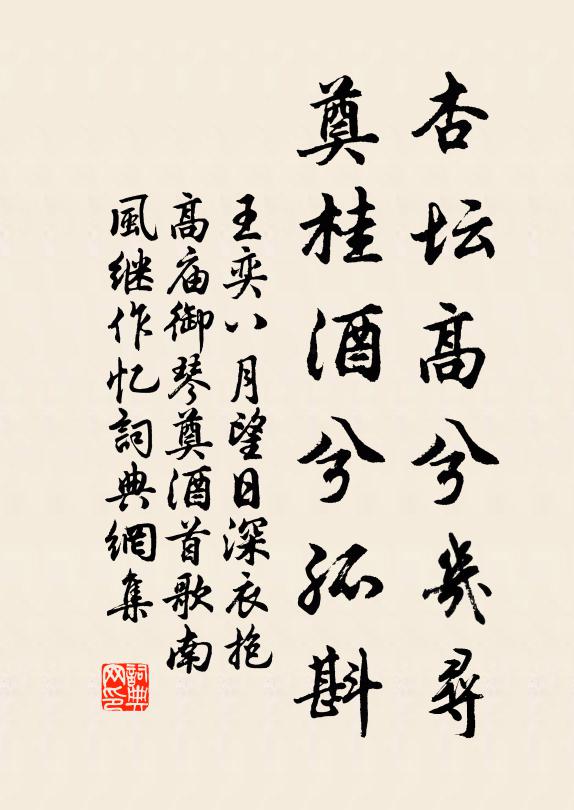 杏坛高兮幾尋
奠桂酒兮孤斟
王奕八月望日深衣抱
高庙御琴奠酒首歌南
風继作忆詞典網集
詞典网印